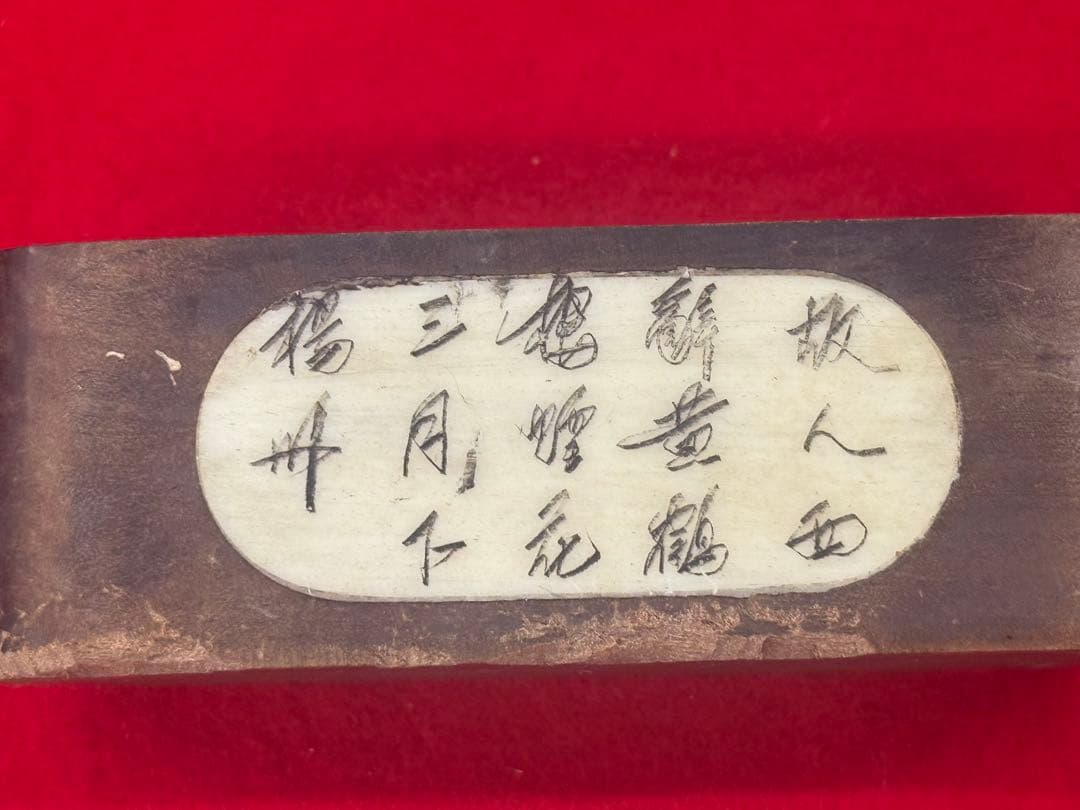 故人西
辭黄鶴
樓煙花
三月下
楊州